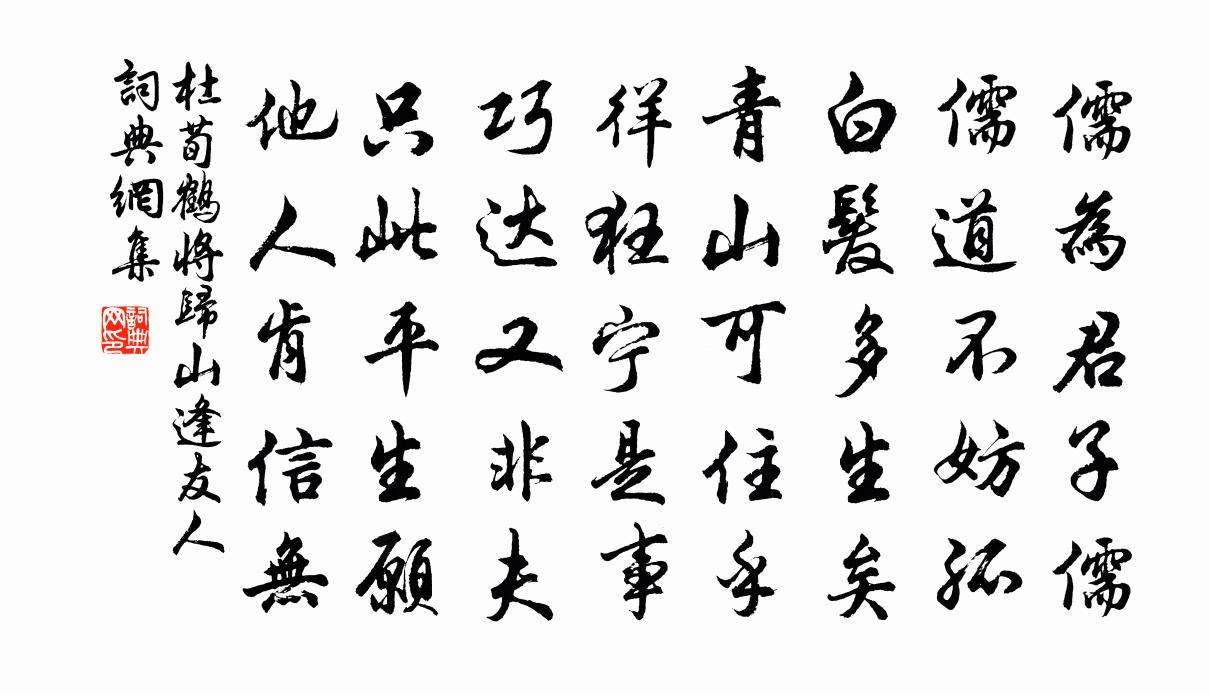 儒為君子儒
儒道不妨孤
白髮多生矣
青山可住乎
徉狂宁是事
巧达又非夫
只此平生願
他人肯信無
杜荀鶴將歸山逢友人
詞典網集
詞典网印